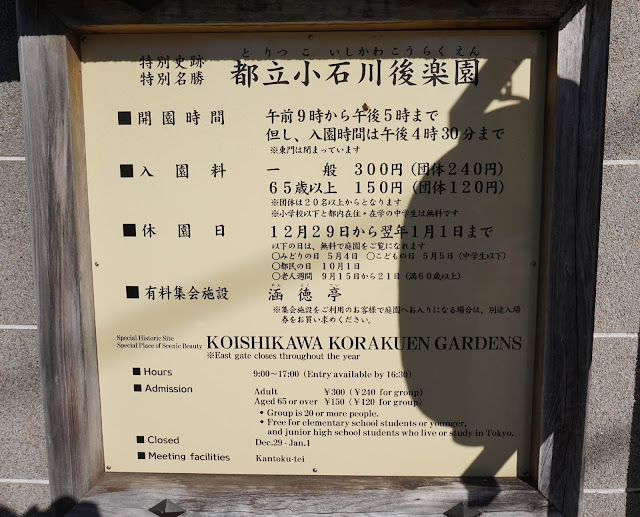 とりつこいしかわこうらくえん
特別史跡
特別名勝
都立小石川後楽園
■開園時間 午前9時から午後5時まで
但し、入園時間は午後4時30分まで
※東門は閉まっています
■入園料 一般 300円(団体240円)
65歳以上 150円(団体120円)
※団体は20名以上からとなります
※小学校以下と都内在住・在学の中学生は無料です
■休園日 12月29日から翌年1月1日まで
以下の日は、無料で庭園をご覧になれます
○みどりの日 5月4日 ○こどもの日 5月5日(中学生以下)
○都民の日 10月1日
○老人週間 9月15日から21日(満60歳以上)
■有料集会施設 涵徳亭
※集会施設をご利用のお客様で庭園へお入りになる場合は、別途入場
券をお買い求めください。
Special Historic Site
Special Place of Scenic Beauty
KOISHIKAWA KORAKUEN GARDENS
※East gate closes throughout the year
■Hours 9:00～17:00 (Entry available by 16:30)
■Admission Adult ¥300 (¥240 for group)
Aged 65 or over ¥150 (¥120 for group)
• Group is 20 or more people.
• Free for elementary school students or younger,
and junior high school students who live or study in Tokyo.
■Closed Dec.29 - Jan.1
■Meeting facilities Kantoku-tei